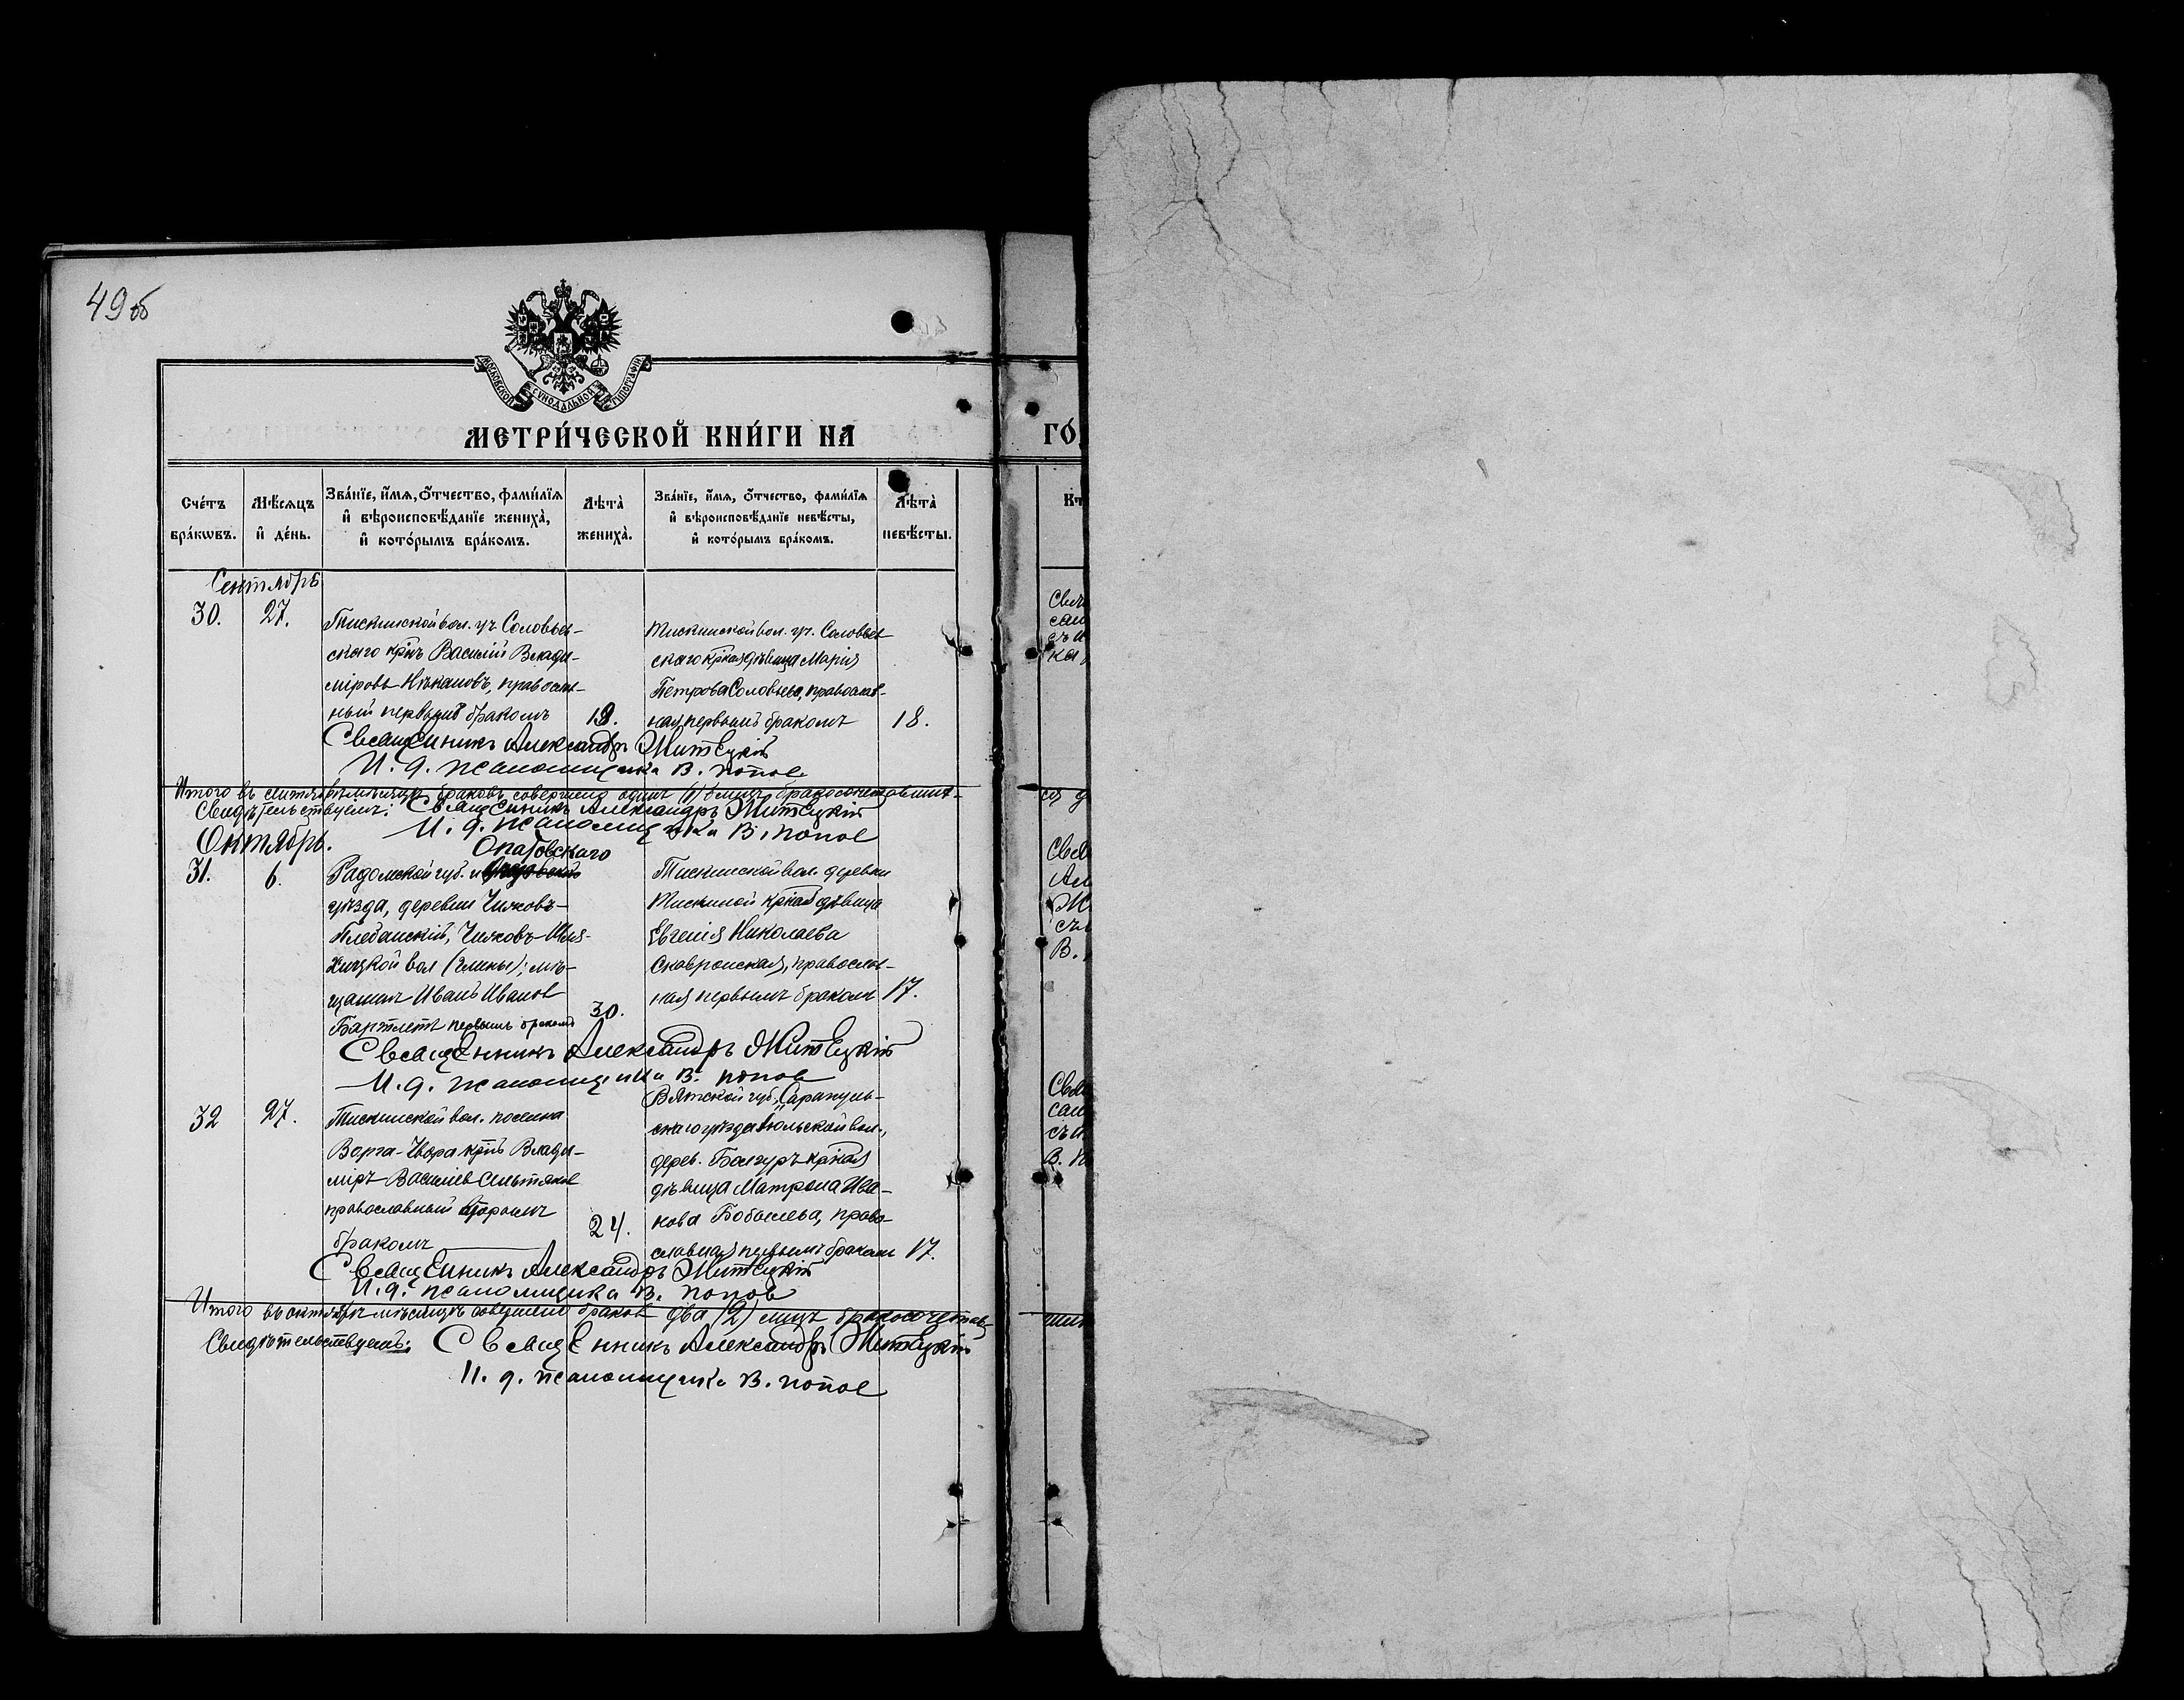 49 об
МОСКОВСКОЙ СУНОДАЛЬНОЙ ТИПОГРАФІИ
МЕТРИ́ЧЕСКОЙ КНИ́ГИ НА
ГО́
Сче́тъ бра́кѡвъ.
Мѣ́сяцъ и҆ де́нь.
Зва́нїе, и҆́мя, ѻ҆́тчество, фами́лїя и҆ вѣроисповѣ́данїе жениха̀, и҆ кото́рымъ бра́комъ.
Лѣта̀ жениха̀.
Зва́нїе, и҆́мя, ѻ҆́тчество, фами́лїя и҆ вѣроисповѣ́данїе невѣ́сты, и҆ кото́рымъ бра́комъ.
Лѣта̀ невѣ́сты.
Кт
Сентябрь
30.
27.
Тискинской вол. уч. Соловьев-
скаго кр-нъ Василій Влади-
міровъ православ-
ный первымъ бракомъ
19.
Тискинской вол. уч. Соловьев-
скаго кр-ная дѣвица Марія
Петрова Соловьева, православ-
ная, первымъ бракомъ
18.
Священникъ Александръ Житецкій
И. д. псаломщика В. Попов
Итого въ сентябрѣ мѣсяцѣ браковъ совершено одинъ (1) лицъ бракосочетавших-
ся д
Свидѣтельствуемъ: Священникъ Александръ Житецкій
И. д. псаломщика В. Попов
Октябрь.
31.
6.
Опатовскаго
Радомской губ.
уѣзда, деревни Чижовъ-
Плебанскій,
вол (гмины); мѣ-
щанин Иванъ Иванов
Бартлетъ первымъ бракомъ
30.
Тискинской вол. деревни
Тискиной кр-ная дѣвица
Евгенія Николаева
Скавронская, православ-
ная первымъ браком
17.
Священникъ Александръ Житецкій
И. д. псаломщика В. Попов
32
27.
Тискинской вол. поселка
Ворга-Чвора кр-нъ Влади-
міръ Василіев
православный вторымъ
бракомъ
24.
Вятской губ., Сарапуль-
скаго уѣзда вол.,
дерев. Болгуръ кр-ная
дѣвица Матрона Ива-
нова Бобылева, право-
славная первымъ браком
17.
Священникъ Александръ Житецкій
И. д. псаломщика В. Попов
Итого въ октябрѣ мѣсяцѣ совершено браков два (2) лицъ бракосочетав-
ших
Свидѣтельствуемъ: Священникъ Александръ Житецкій
И. д. псаломщика В. Попов